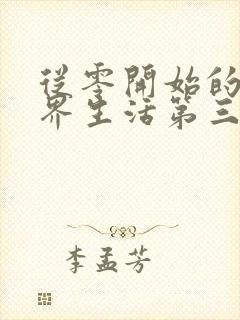 從零開始的
界生活第三
李孟芳